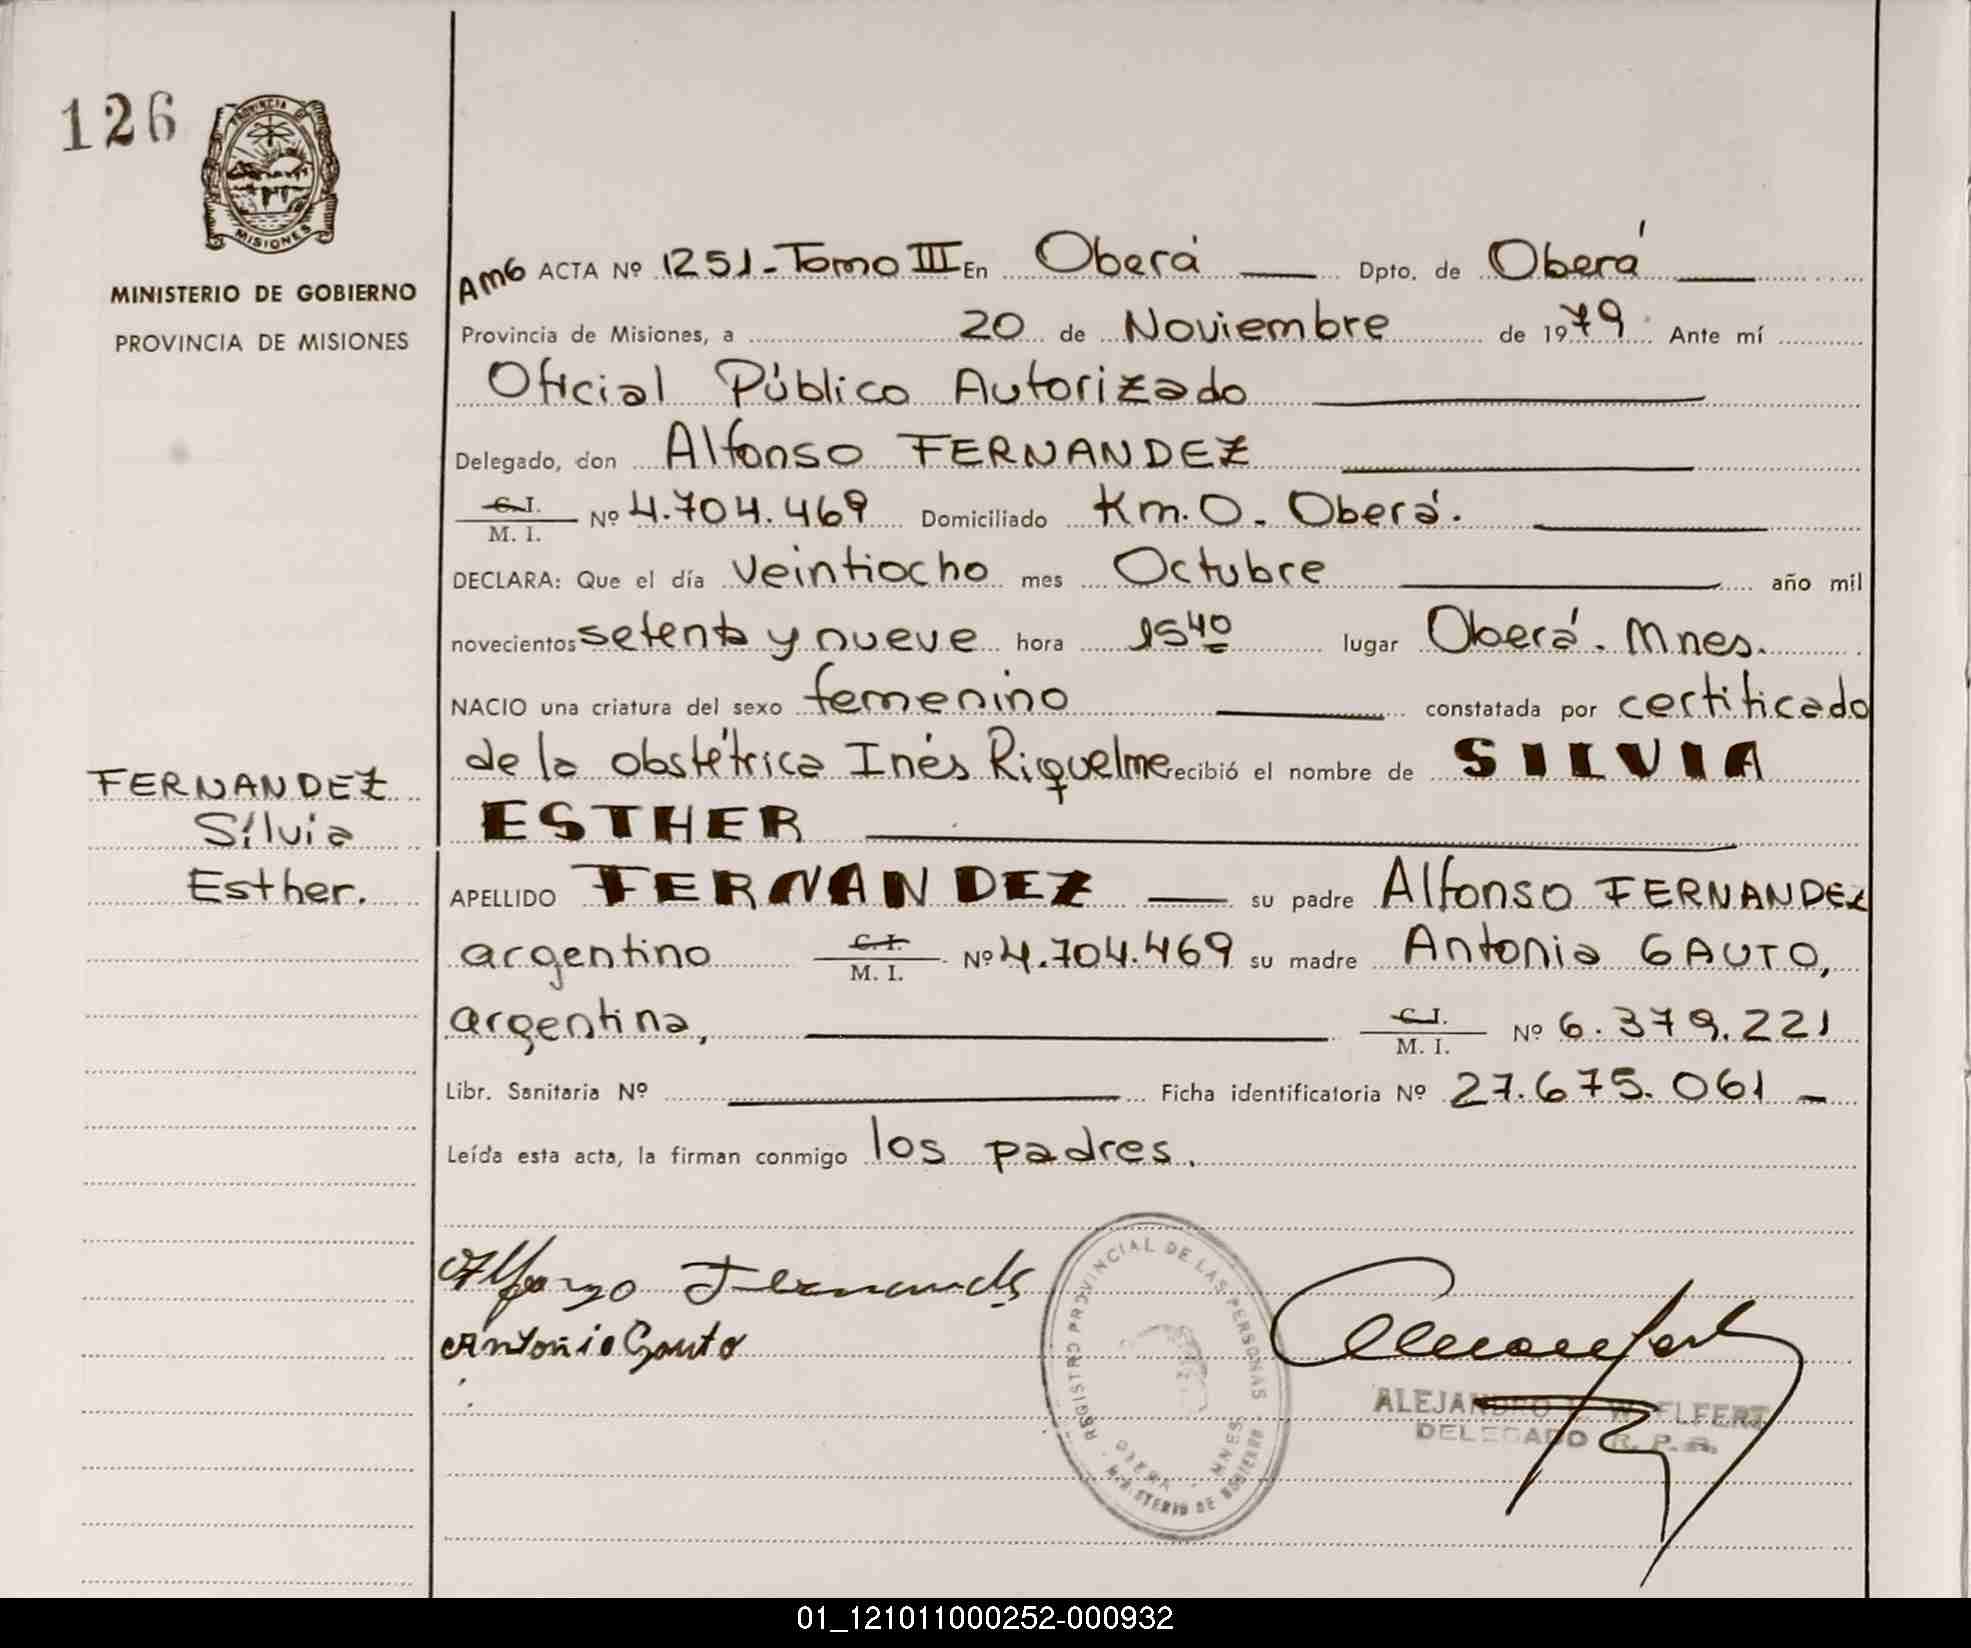 126
PROVINCIA DE
MISIONES
MINISTERIO DE GOBIERNO
PROVINCIA DE MISIONES
AMG ACTA Nº 1251-Tomo III En Oberá Dpto. de Oberá
Provincia de Misiones, a 20 de Noviembre de 1979 Ante mí
Oficial Público Autorizado
Delegado, don Alfonso FERNANDEZ
C.I.
M. I. Nº 4.704.469 Domiciliado Km. O. Oberá.
DECLARA: Que el día veintiocho mes Octubre año mil
novecientos setenta y nueve hora 15 40 lugar Oberá. Mnes.
NACIO una criatura del sexo femenino constatada por certificado
de la obstétrica Inés Riquelme recibió el nombre de SILVIA
ESTHER
FERNANDEZ
Silvia
Esther.
APELLIDO FERNANDEZ su padre Alfonso FERNANDEZ
argentino C.I.
M. I. Nº 4.704.469 su madre Antonia GAUTO,
argentina, C.I.
M. I. Nº 6.379.221
Libr. Sanitaria Nº Ficha identificatoria Nº 27.675.061
Leída esta acta, la firman conmigo los padres.
Antonia Gauto
REGISTRO PROVINCIAL DE LAS PERSONAS
OBERA - MNES.
MINISTERIO DE GOBIERNO
ALEJANDRO
DELEGADO R. P. P.
01_121011000252-000932